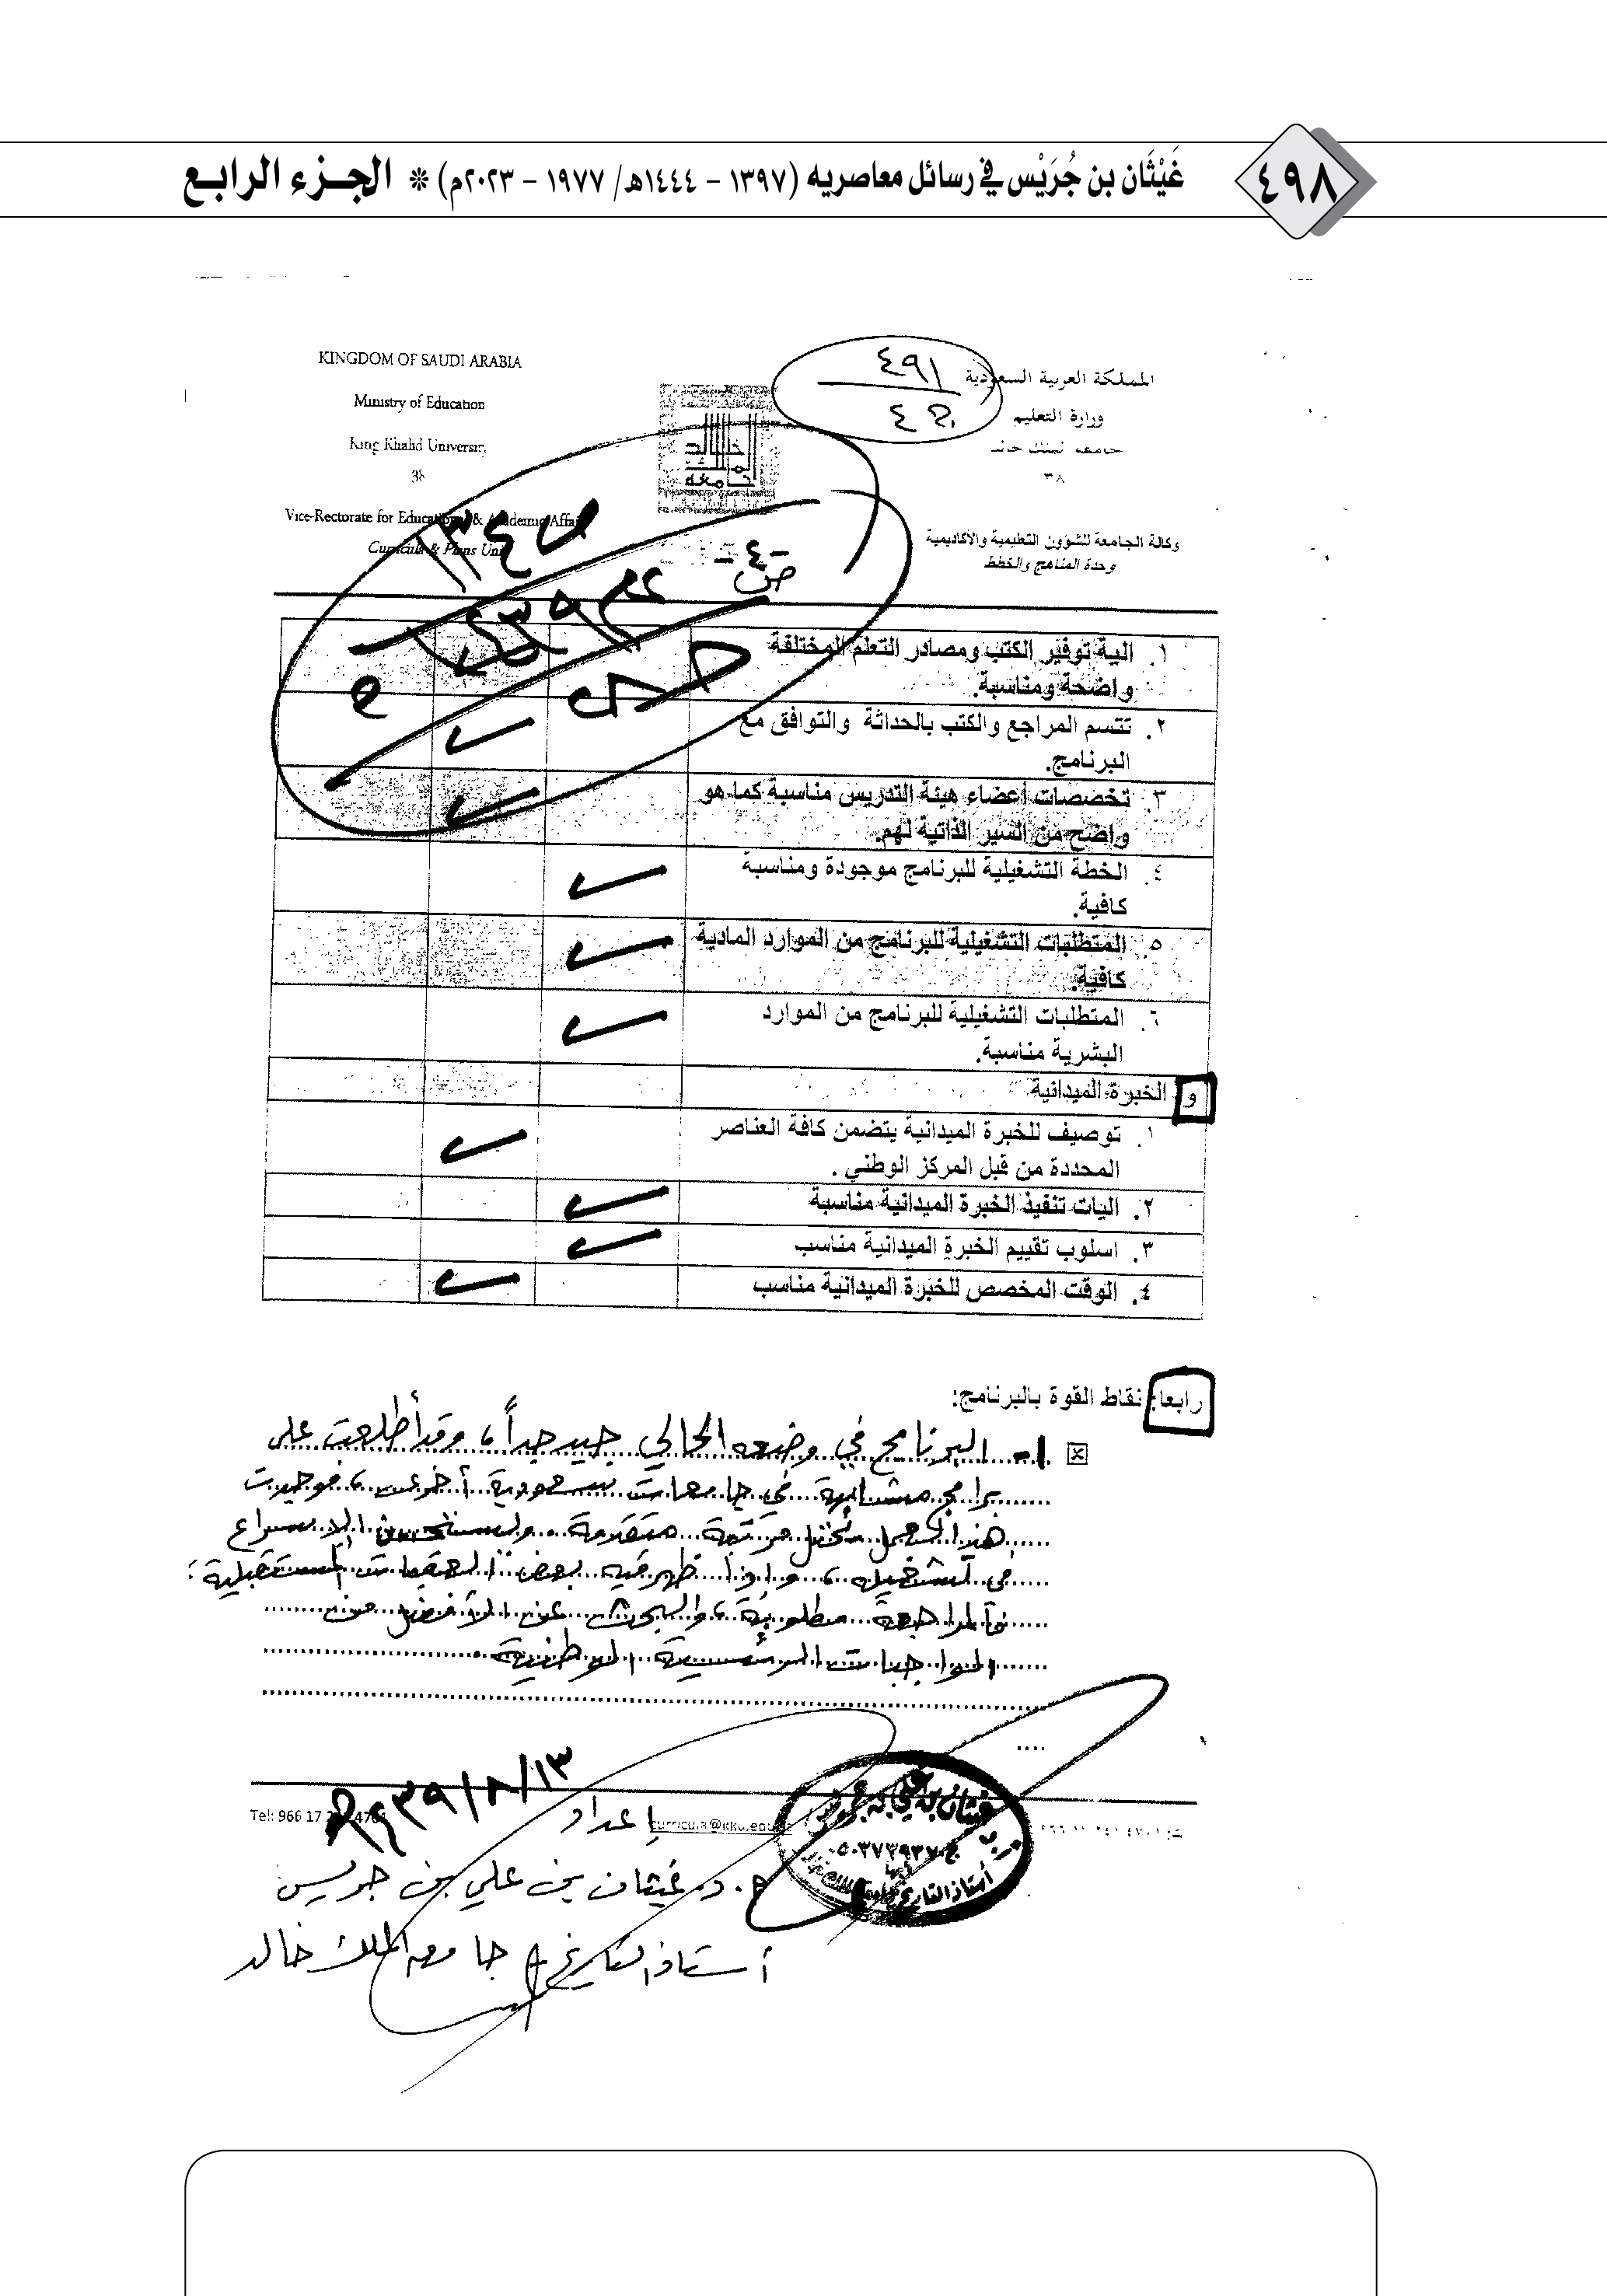 ٤٩٨
غَيْثَان بن جُرَيْس في رسائل معاصريه (١٣٩٧ - ١٤٤٤هـ/ ١٩٧٧ - ٢٠٢٣م) * الجـزء الرابـع
KINGDOM OF SAUDI ARABIA
Ministry of Education
King Khalid University
38
Vice-Rectorate for Educational & Academic Affairs
Curricula & Plans Unit
٤٩١
المملكة العربية السعودية
وزارة التعليم
٣٨
وكالة الجامعة للشؤون التعليمية والأكاديمية
وحدة المناهج والخطط
ص -٤-
١. الية توفير الكتب ومصادر التعلم المختلفة
واضحة ومناسبة.
٢. تتسم المراجع والكتب بالحداثة والتوافق مع
البرنامج.
٣. تخصصات أعضاء هيئة التدريس مناسبة كما هو
واضح من السير الذاتية لهم.
٤. الخطة التشغيلية للبرنامج موجودة ومناسبة
كافية.
٥. المتطلبات التشغيلية للبرنامج من الموارد المادية
كافية.
٦. المتطلبات التشغيلية للبرنامج من الموارد
البشرية مناسبة.
و الخبرة الميدانية
١. توصيف للخبرة الميدانية يتضمن كافة العناصر
المحددة من قبل المركز الوطني .
٢. اليات تنفيذ الخبرة الميدانية مناسبة
٣. اسلوب تقييم الخبرة الميدانية مناسب
٤. الوقت المخصص للخبرة الميدانية مناسب
رابعا: نقاط القوة بالبرنامج:
١- البرنامج في وضعه الحالي جيد جداً، وقد أطلعت على
برامج مشابهة في جامعات سعودية أخرى، فوجدت
هذا العمل يحتل مرتبة متقدمة. الإسراع
في تشغيله، وإذا ظهر فيه بعض العقبات المستقبلية؛
فالمراجعة مطلوبة، والبحث عن الأفضل من
الواجبات الرئيسية الوطنية.
١٤٣٩/٨/١٣
Tel: 966 17
curricula@kku.edu
إعداد
أ.د. غيثان بن علي بن جريس
أستاذ التاريخ / جامعة الملك خالد
غيثان بن علي بن جريس
أستاذ التاريخ